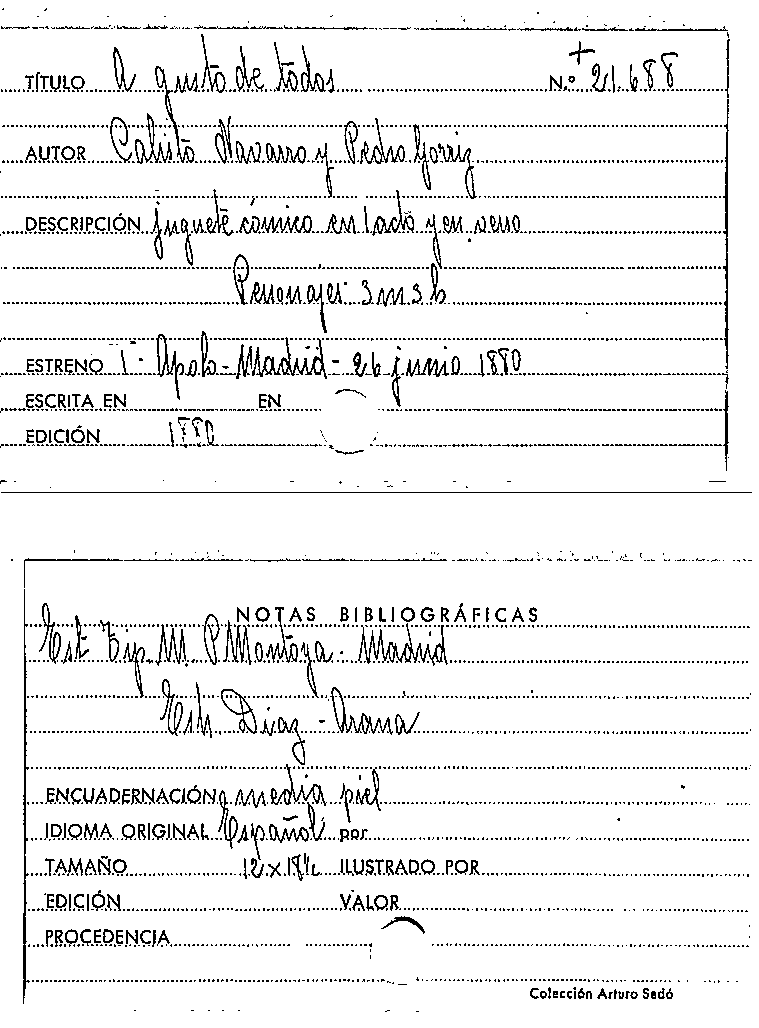 TÍTULO A gusto de todos N.º + 21.688
AUTOR Calisto Navarro y Pedro Gorriz
DESCRIPCIÓN juguete cómico en 1 acto y en verso
Personajes 3 m 3 h
ESTRENO T- Apolo - Madrid - 26 junio 1880
ESCRITA EN EN
EDICIÓN 1880
NOTAS BIBLIOGRÁFICAS
Est Tip. M. P Montoya - Madrid
Diaz - Arana
ENCUADERNACIÓN media piel
IDIOMA ORIGINAL Español POR
TAMAÑO 12 x 18 ILUSTRADO POR
EDICIÓN VALOR
PROCEDENCIA
Colección Arturo Sedó